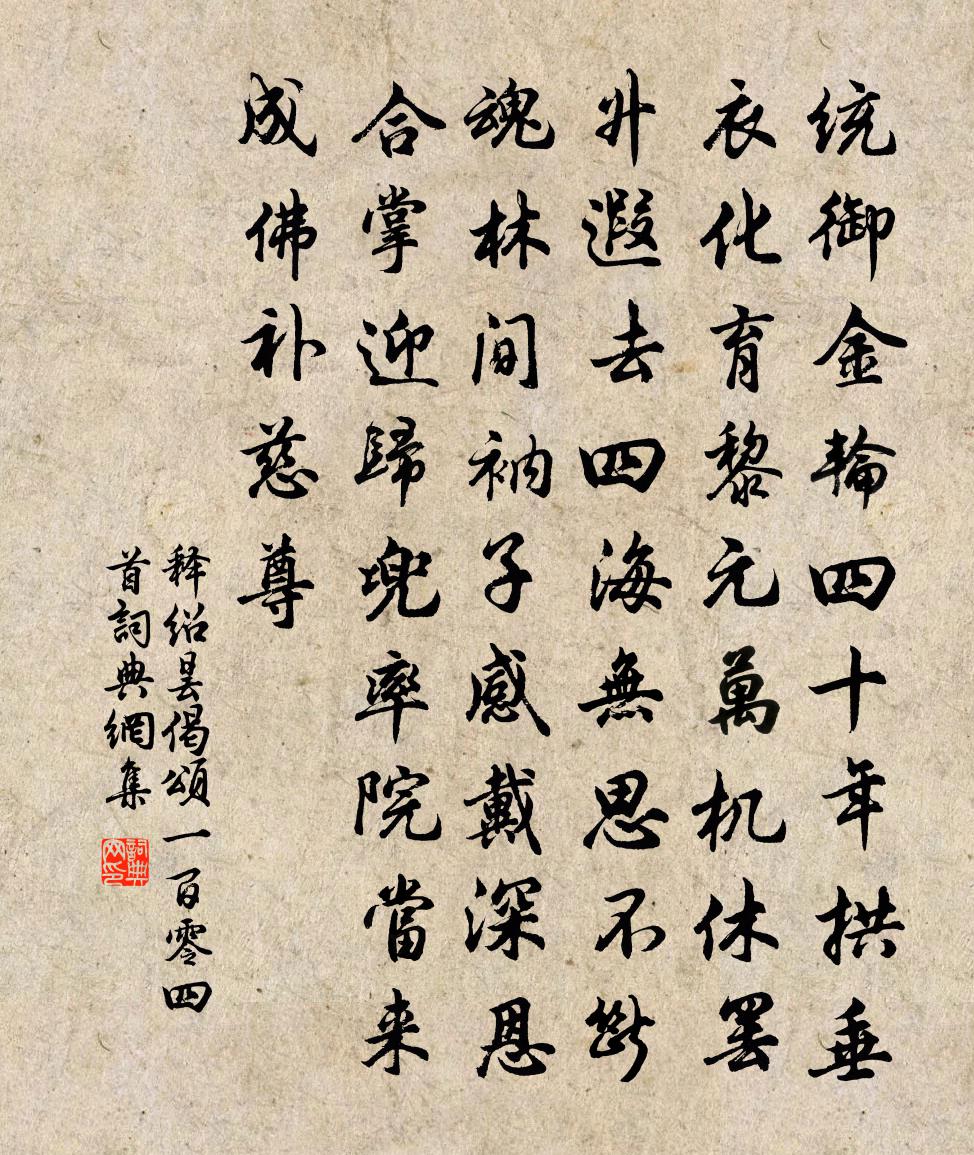 统御金輪四十年拱垂
衣化育黎元萬机休罢
升遐去四海無思不斷
魂林间衲子感戴深恩
合掌迎歸兜率院當来
成佛补慈尊
释绍昙偈頌一百零四
首詞典網集
詞典网印